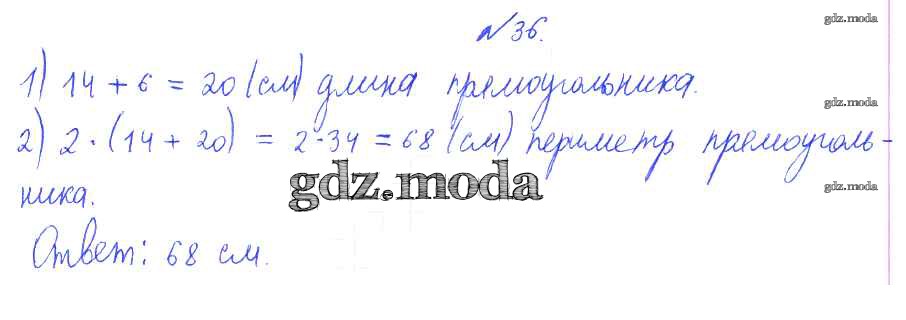 №36.
gdz.moda
1) 14 + 6 = 20 (см) длина прямоугольника.
gdz.moda
2) 2·(14 + 20) = 2·34 = 68 (см) периметр прямоуголь-
gdz.moda
gdz.moda
ника.
Ответ: 68 см.